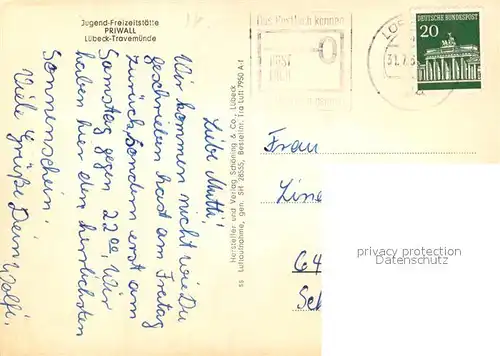 Jugend-Freizeitstätte
PRIWALL
Lübeck-Travemünde
Liebe Mutti!
Wir kommen nicht wie Du
geschrieben hast am Freitag
zurück, sondern erst am
Samstag gegen 22.00, Wir
haben hier den herrlichsten
Sonnenschein.
Viele Grüße Dein Wolfi,
Hersteller und Verlag Schöning & Co., Lübeck
ss Luftaufnahme, gen. SH 28555, Bestellnr. Tra Luft 7950 A-1
Das Postfach kennen
POST
31.7.6
DEUTSCHE BUNDESPOST
20
Frau
64
privacy protection
Datenschutz